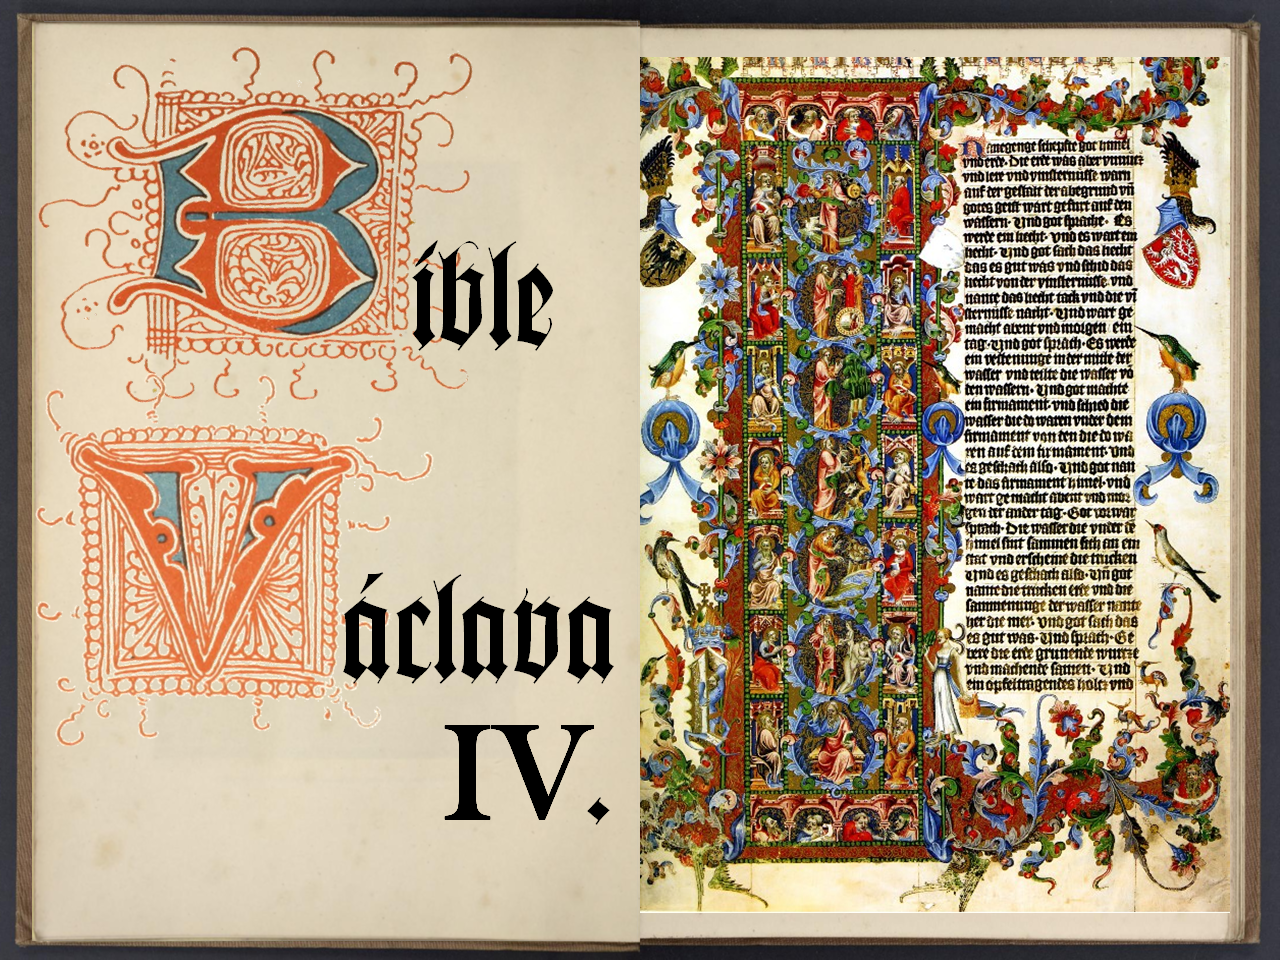 Bible
Václava
IV.
Nanegenge schepfte got himel
vnd erde. Die erde was aber vnnutz
vnd lere vnd vinsternusse warn
auf der gestalt der abegrund vnd
gotes geist wart gefurt auf den
wassern. Vnd got sprache. Es
werde ein liecht. vnd es wart ein
liecht. Vnd got sach das liecht
das es gut was vnd schid das
liecht von der vinsternusse. vnd
nante das liecht tack vnd die vi
sternusse nacht. Vnd wart ge
macht abent vnd morgen ein
tag. Vnd got sprach. Es werde
ein vestenunge in der mitte der
wasser vnd teilte die wasser vō
den wassern. Vnd got machte
ein firmament. vnd schied die
wasser die do waren vnder dem
firmament von den die do wa
ren auf dem firmament. Vnd
es geschach also. Vnd got nan
te das firmament himel. vnd
wart gemacht abent vnd mor
gen der ander tag. Got vorwar
sprach. Die wasser die vnder dē
himel sint sammen sich an ein
stat vnd erscheine die trucken
Vnd es geschach also. Vn got
nante die trucken erde vnd die
sammenunge der wasser nante
her die mer. vnd got sach das
es gut was. Vnd sprach. Ge
bere die erde grunende wurze
vnd machende samen. Vnd
ein opfeltragendes holtz vnd